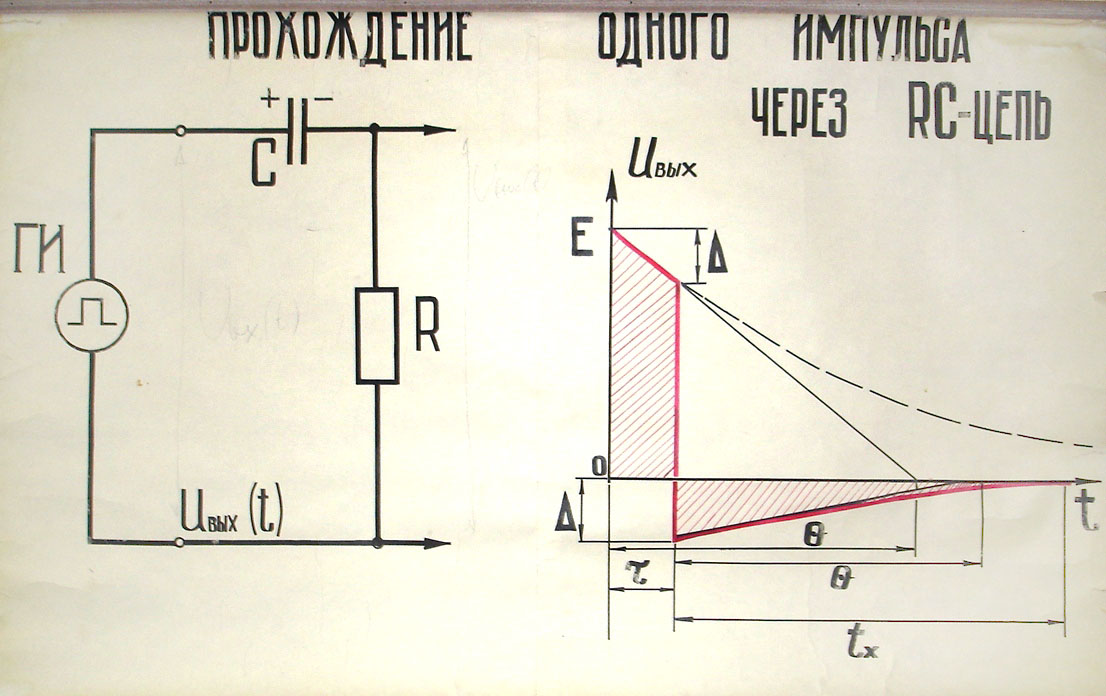 ПРОХОЖДЕНИЕ ОДНОГО ИМПУЛЬСА
ЧЕРЕЗ RC-ЦЕПЬ
+ −
C
ГИ
R
Uвых (t)
Uвх(t)
Uвых
E
Δ
0
Δ
t
θ
τ
θ
tx